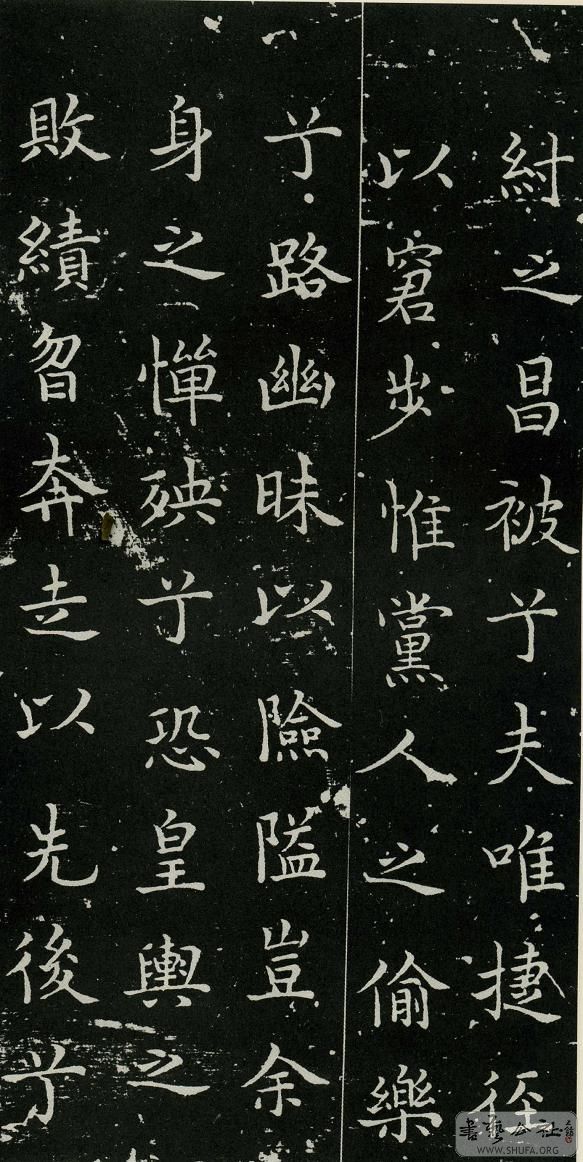 紂之昌被兮夫唯捷徑
以窘步惟黨人之偷樂
兮路幽昧以險隘豈余
身之憚殃兮恐皇輿之
敗績曶奔走以先後兮
書藝公社
WWW.SHUFA.ORG